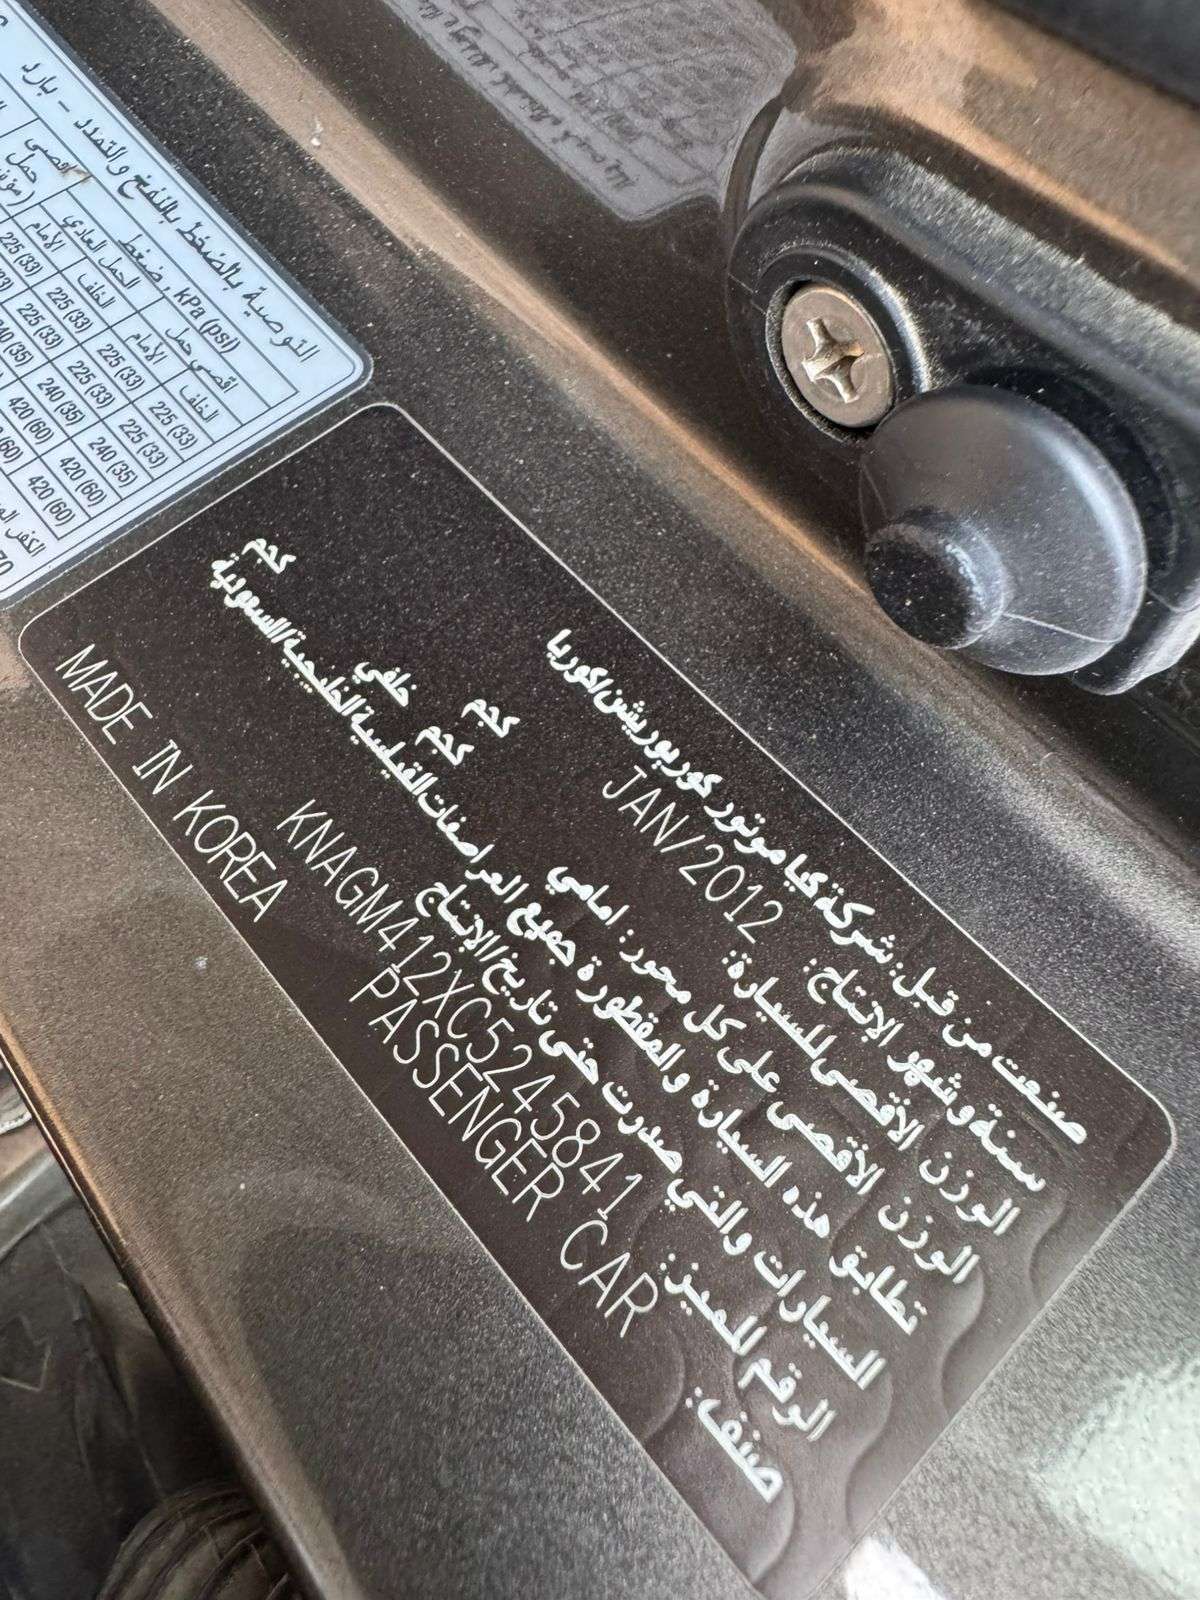 التوصية بالضغط بالنفخ والتمدد - بارد
ضغط , kPa (psi)
الحمل العادي
اقصى حمل
الأمام
الخلف
الأمام
الخلف
225 (33)
225 (33)
225 (33)
225 (33)
225 (33)
225 (33)
225 (33)
240 (35)
240 (35)
240 (35)
420 (60)
420 (60)
420 (60)
صنعت من قبل: شركة كيا موتور كوربوريشن/كوريا
سنة وشهر الإنتاج: JAN/2012
الوزن الأقصى للسيارة: كجم
الوزن الأقصى على كل محور: امامي كجم خلفي كجم
تطابق هذه السيارة والمقطورة جميع المواصفات القياسية الخليجية/السعودية
السيارات والتي صدرت حتى تاريخ الإنتاج
الرقم المميز: KNAGM412XC5245841
صنف: PASSENGER CAR
MADE IN KOREA